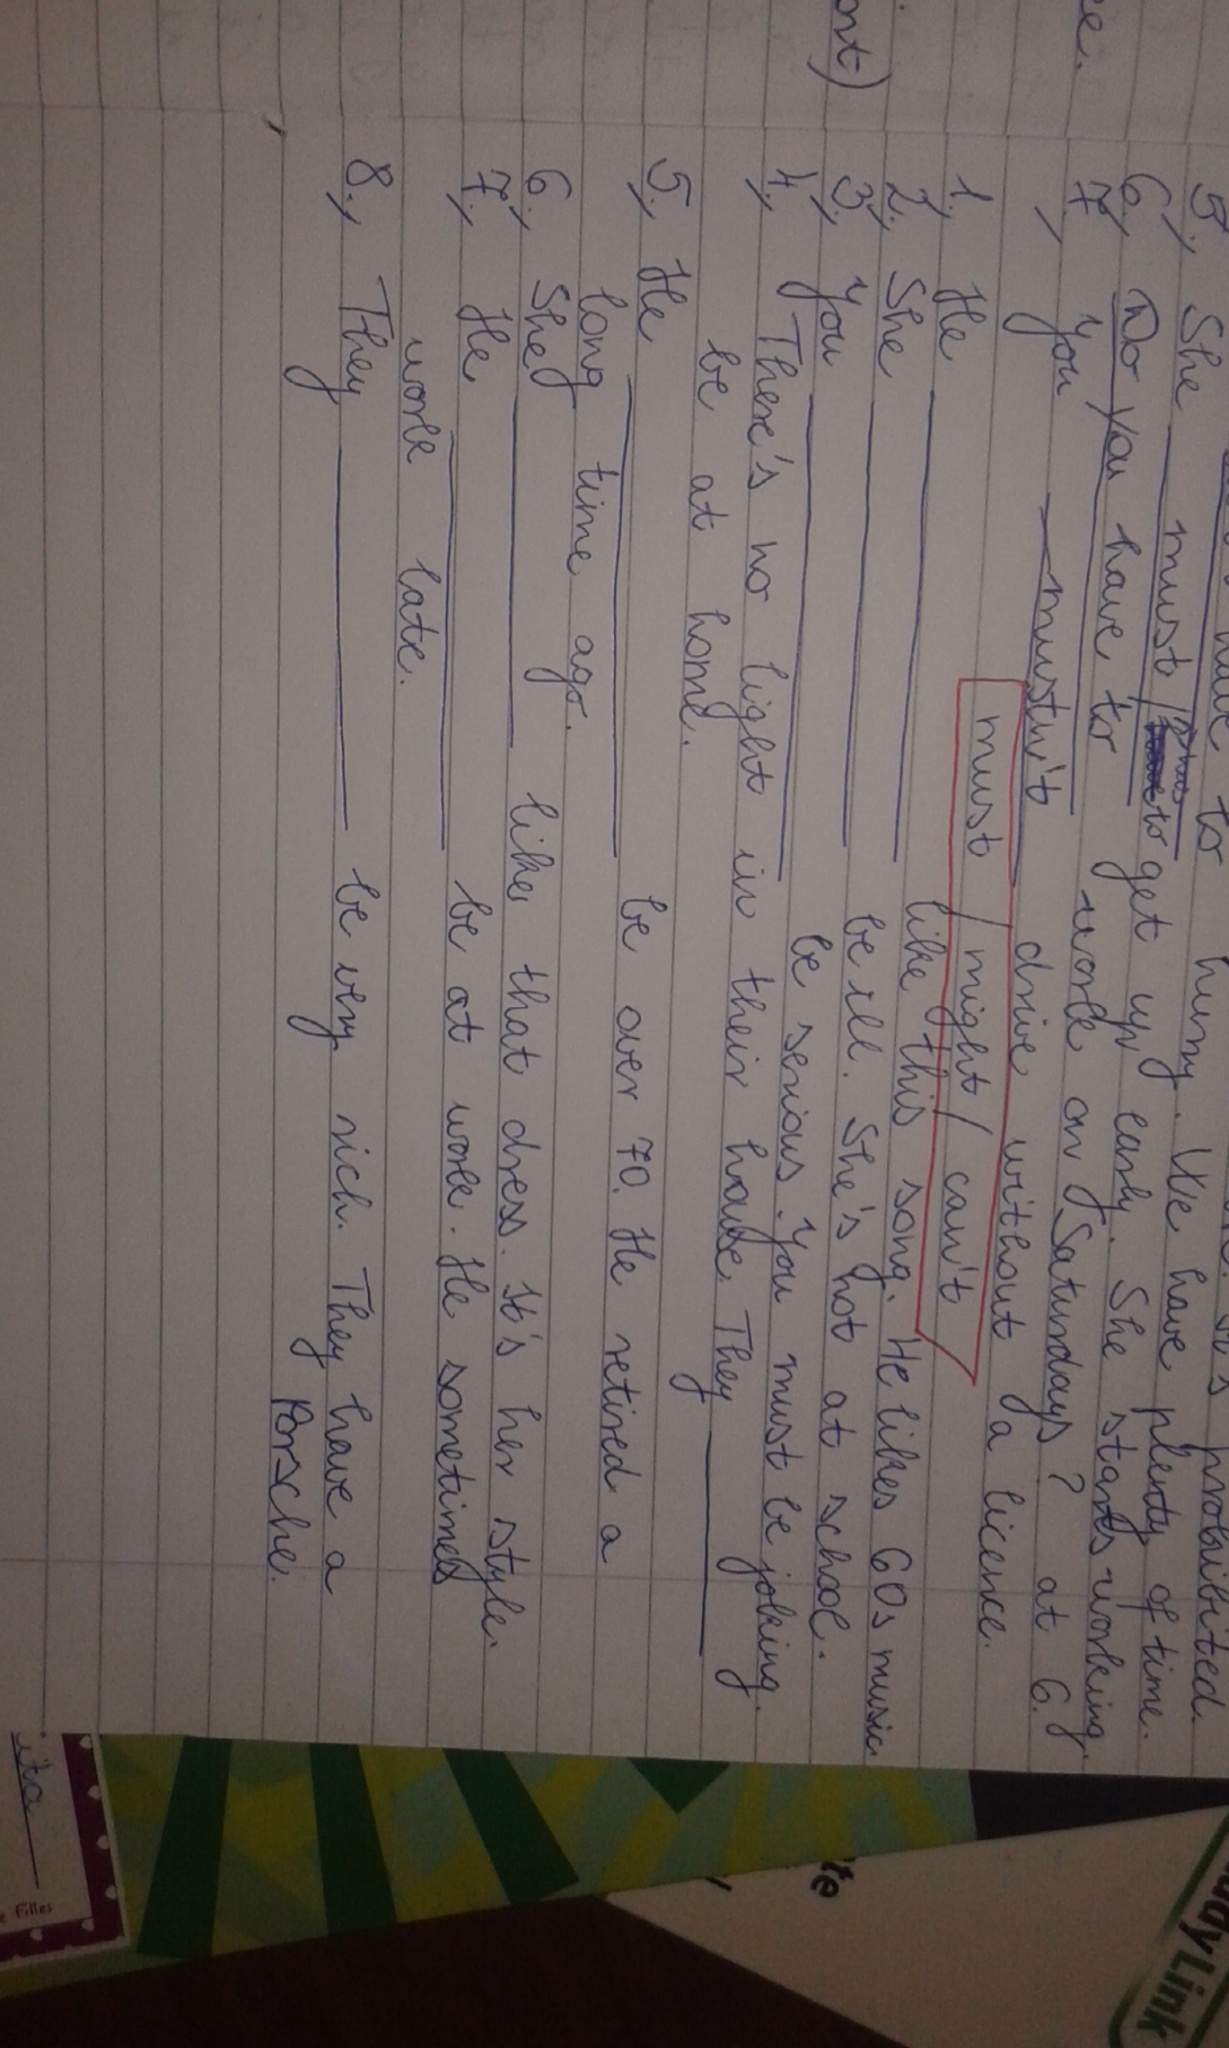 ee.
ont)
have to hurry. We have plenty of time.
5., She must / has to get up early. She starts working at 6.
6., Do you have to work on Saturdays?
7., You mustn't drive without a licence.
must / might / can't
1., He like this song. He likes 60s music.
2., She be ill. She's not at school.
3., You be serious. You must be joking.
4., There's no light in their house. They
be at home.
5., He be over 70. He retired a
long time ago.
6., She likes that dress. It's her style.
7., He be at work. He sometimes
work late.
8., They be very rich. They have a
Porsche.
ita
Filles